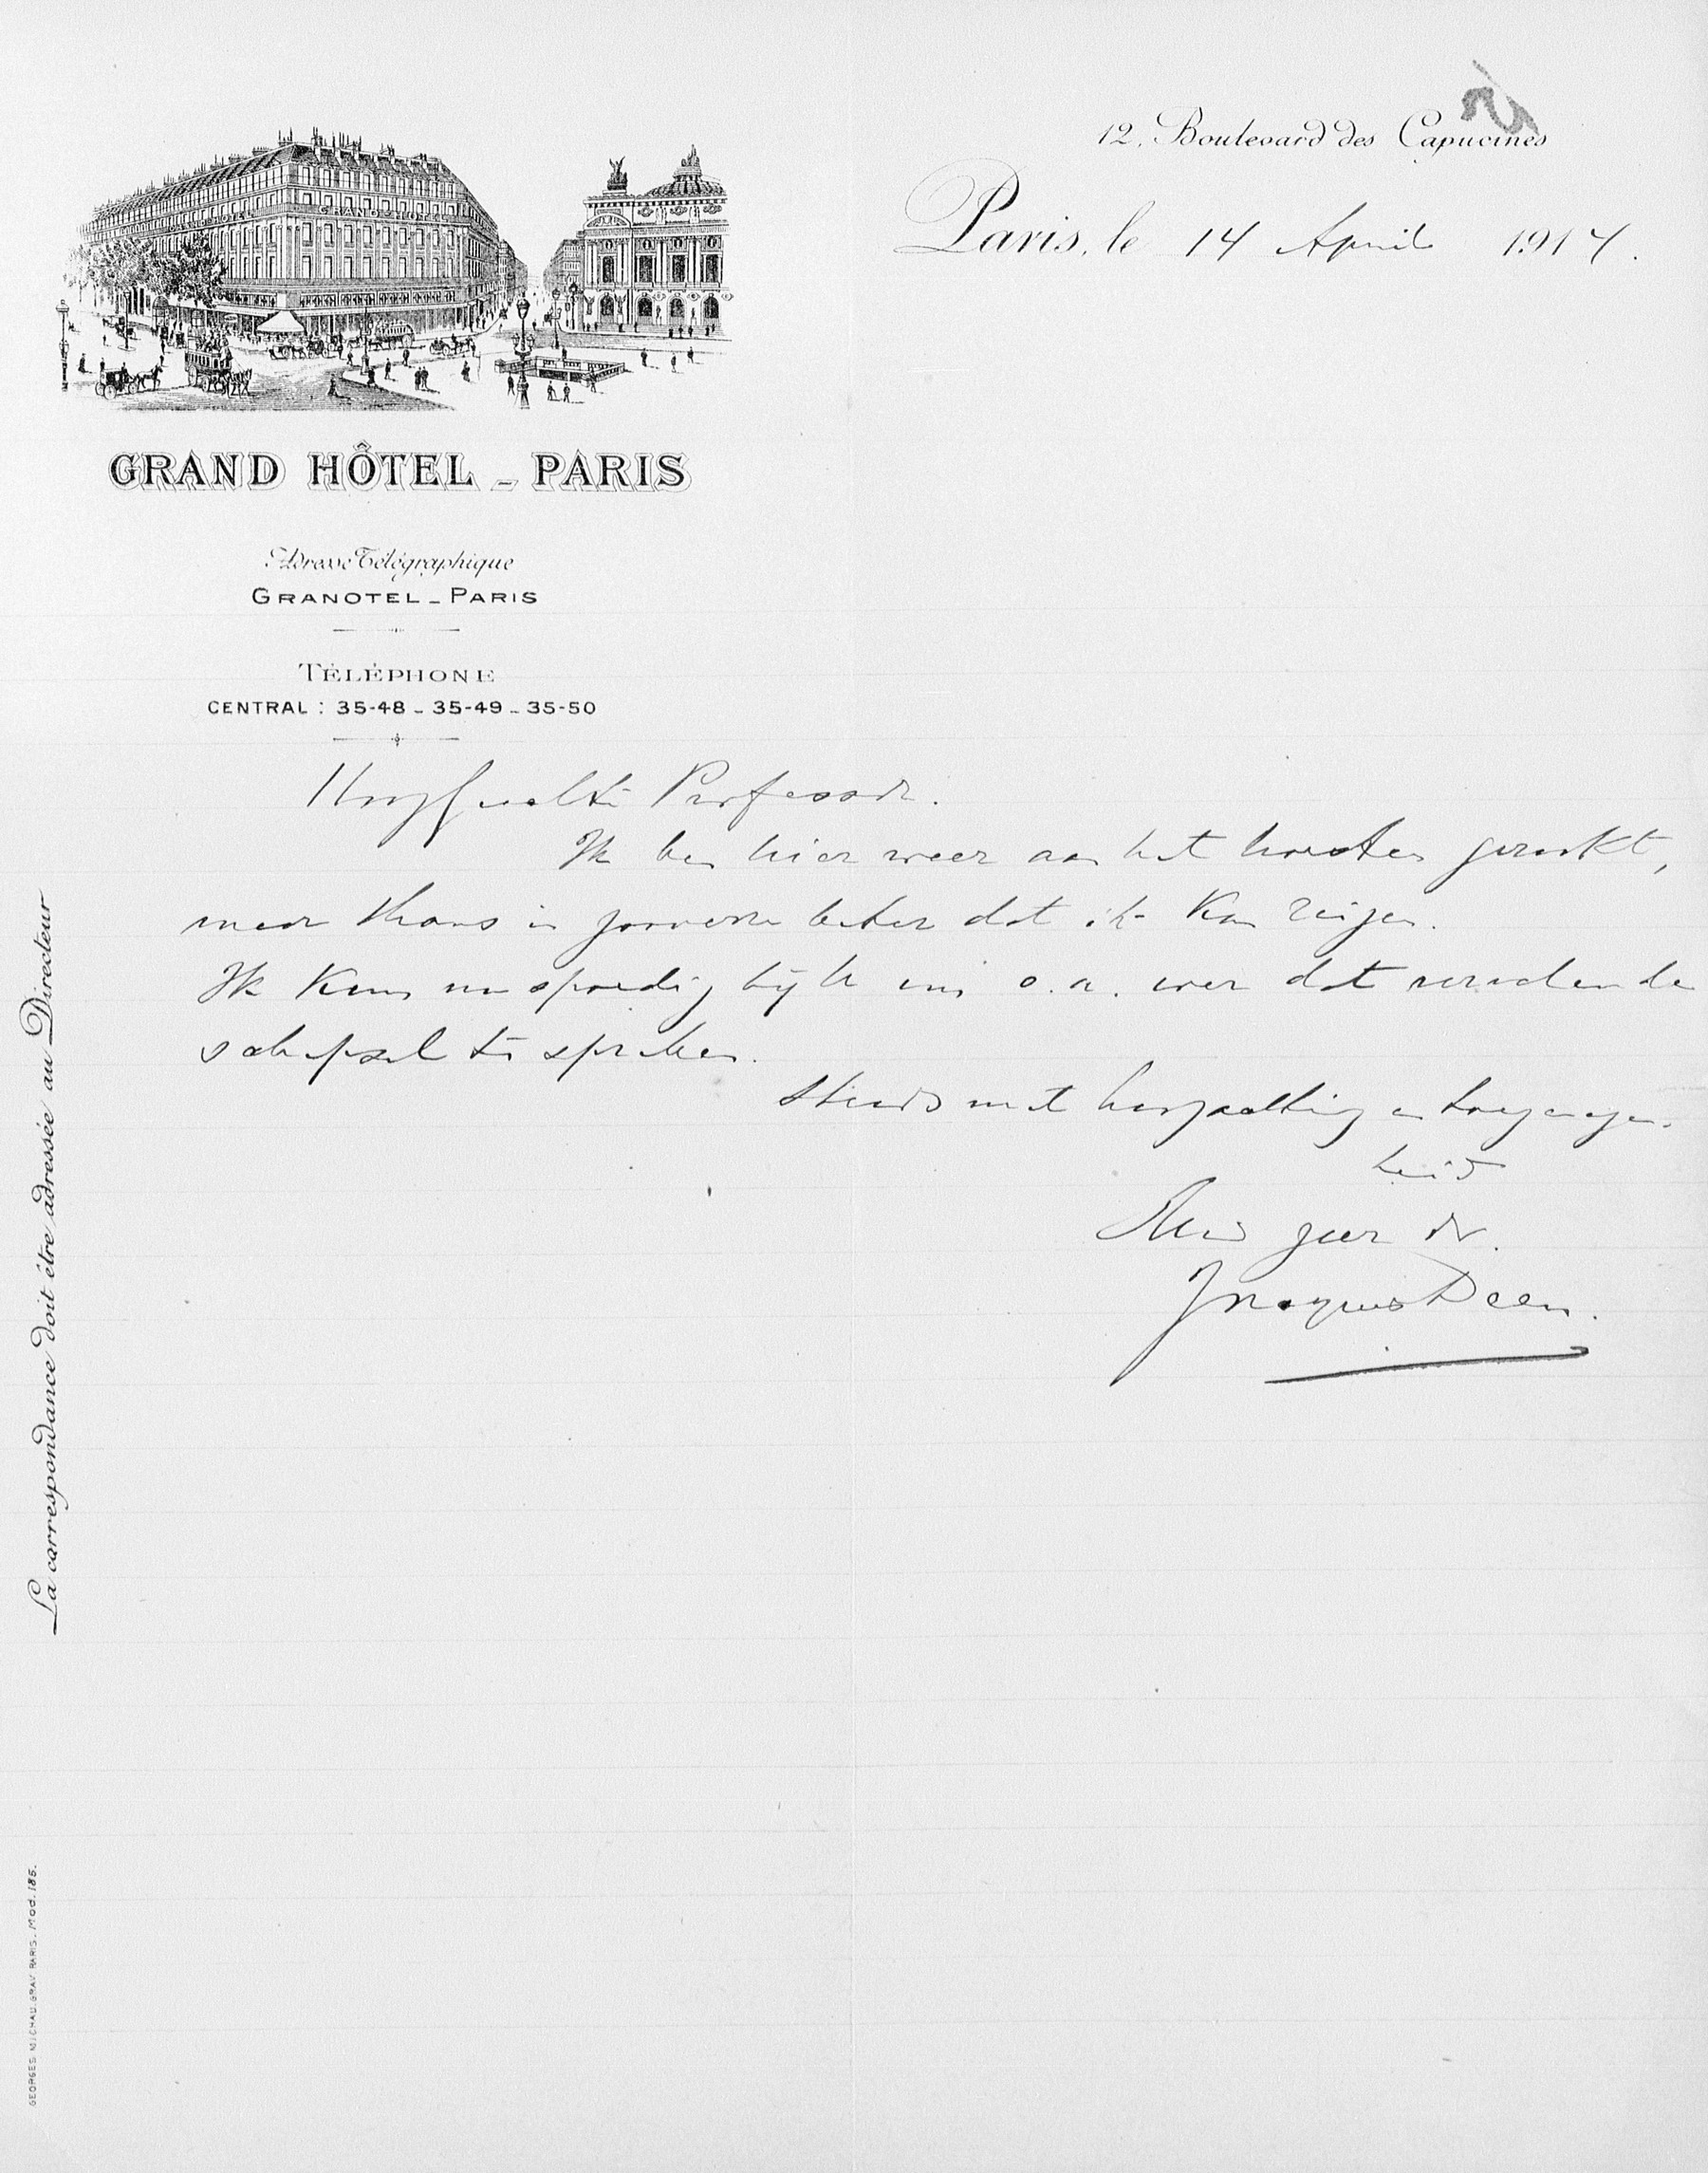 12, Boulevard des Capucines
Paris, le 14 April 1914.
GRAND HÔTEL - PARIS
Adresse Télégraphique
GRANOTEL - PARIS
TÉLÉPHONE
CENTRAL : 35-48 - 35-49 - 35-50
Hooggeachte Professor.
Ik ben hier weer aan het hoesten geraakt,
maar thans in zooverre beter dat ik kan reizen.
Ik kom nu spoedig bij U om o.a. over dat
schepsel te spreken.
Steeds met hoogachting en toegenegen-
heid
Uw zeer dv.
Jacques Deen.
La correspondance doit être adressée au Directeur
GEORGES MICHAU. GRAV. PARIS. Mod. 186.